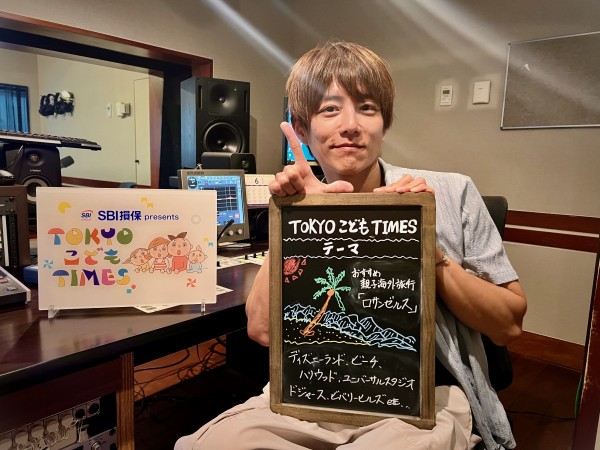 SBI SBI損保 presents
TOKYO
こども
TIMES
TOKYO こども TIMES
テーマ
おすすめ
親子海外旅行
「ロサンゼルス」
ディズニーランド、ビーチ、
ハリウッド、ユニバーサルスタジオ
ドジャース、ビバリーヒルズ etc...